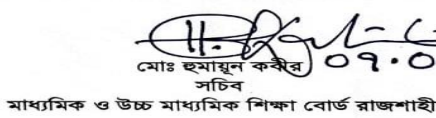 মোঃ হুমায়ূন কবীর
০৭.০
সচিব
মাধ্যমিক ও উচ্চ মাধ্যমিক শিক্ষা বোর্ড রাজশাহী